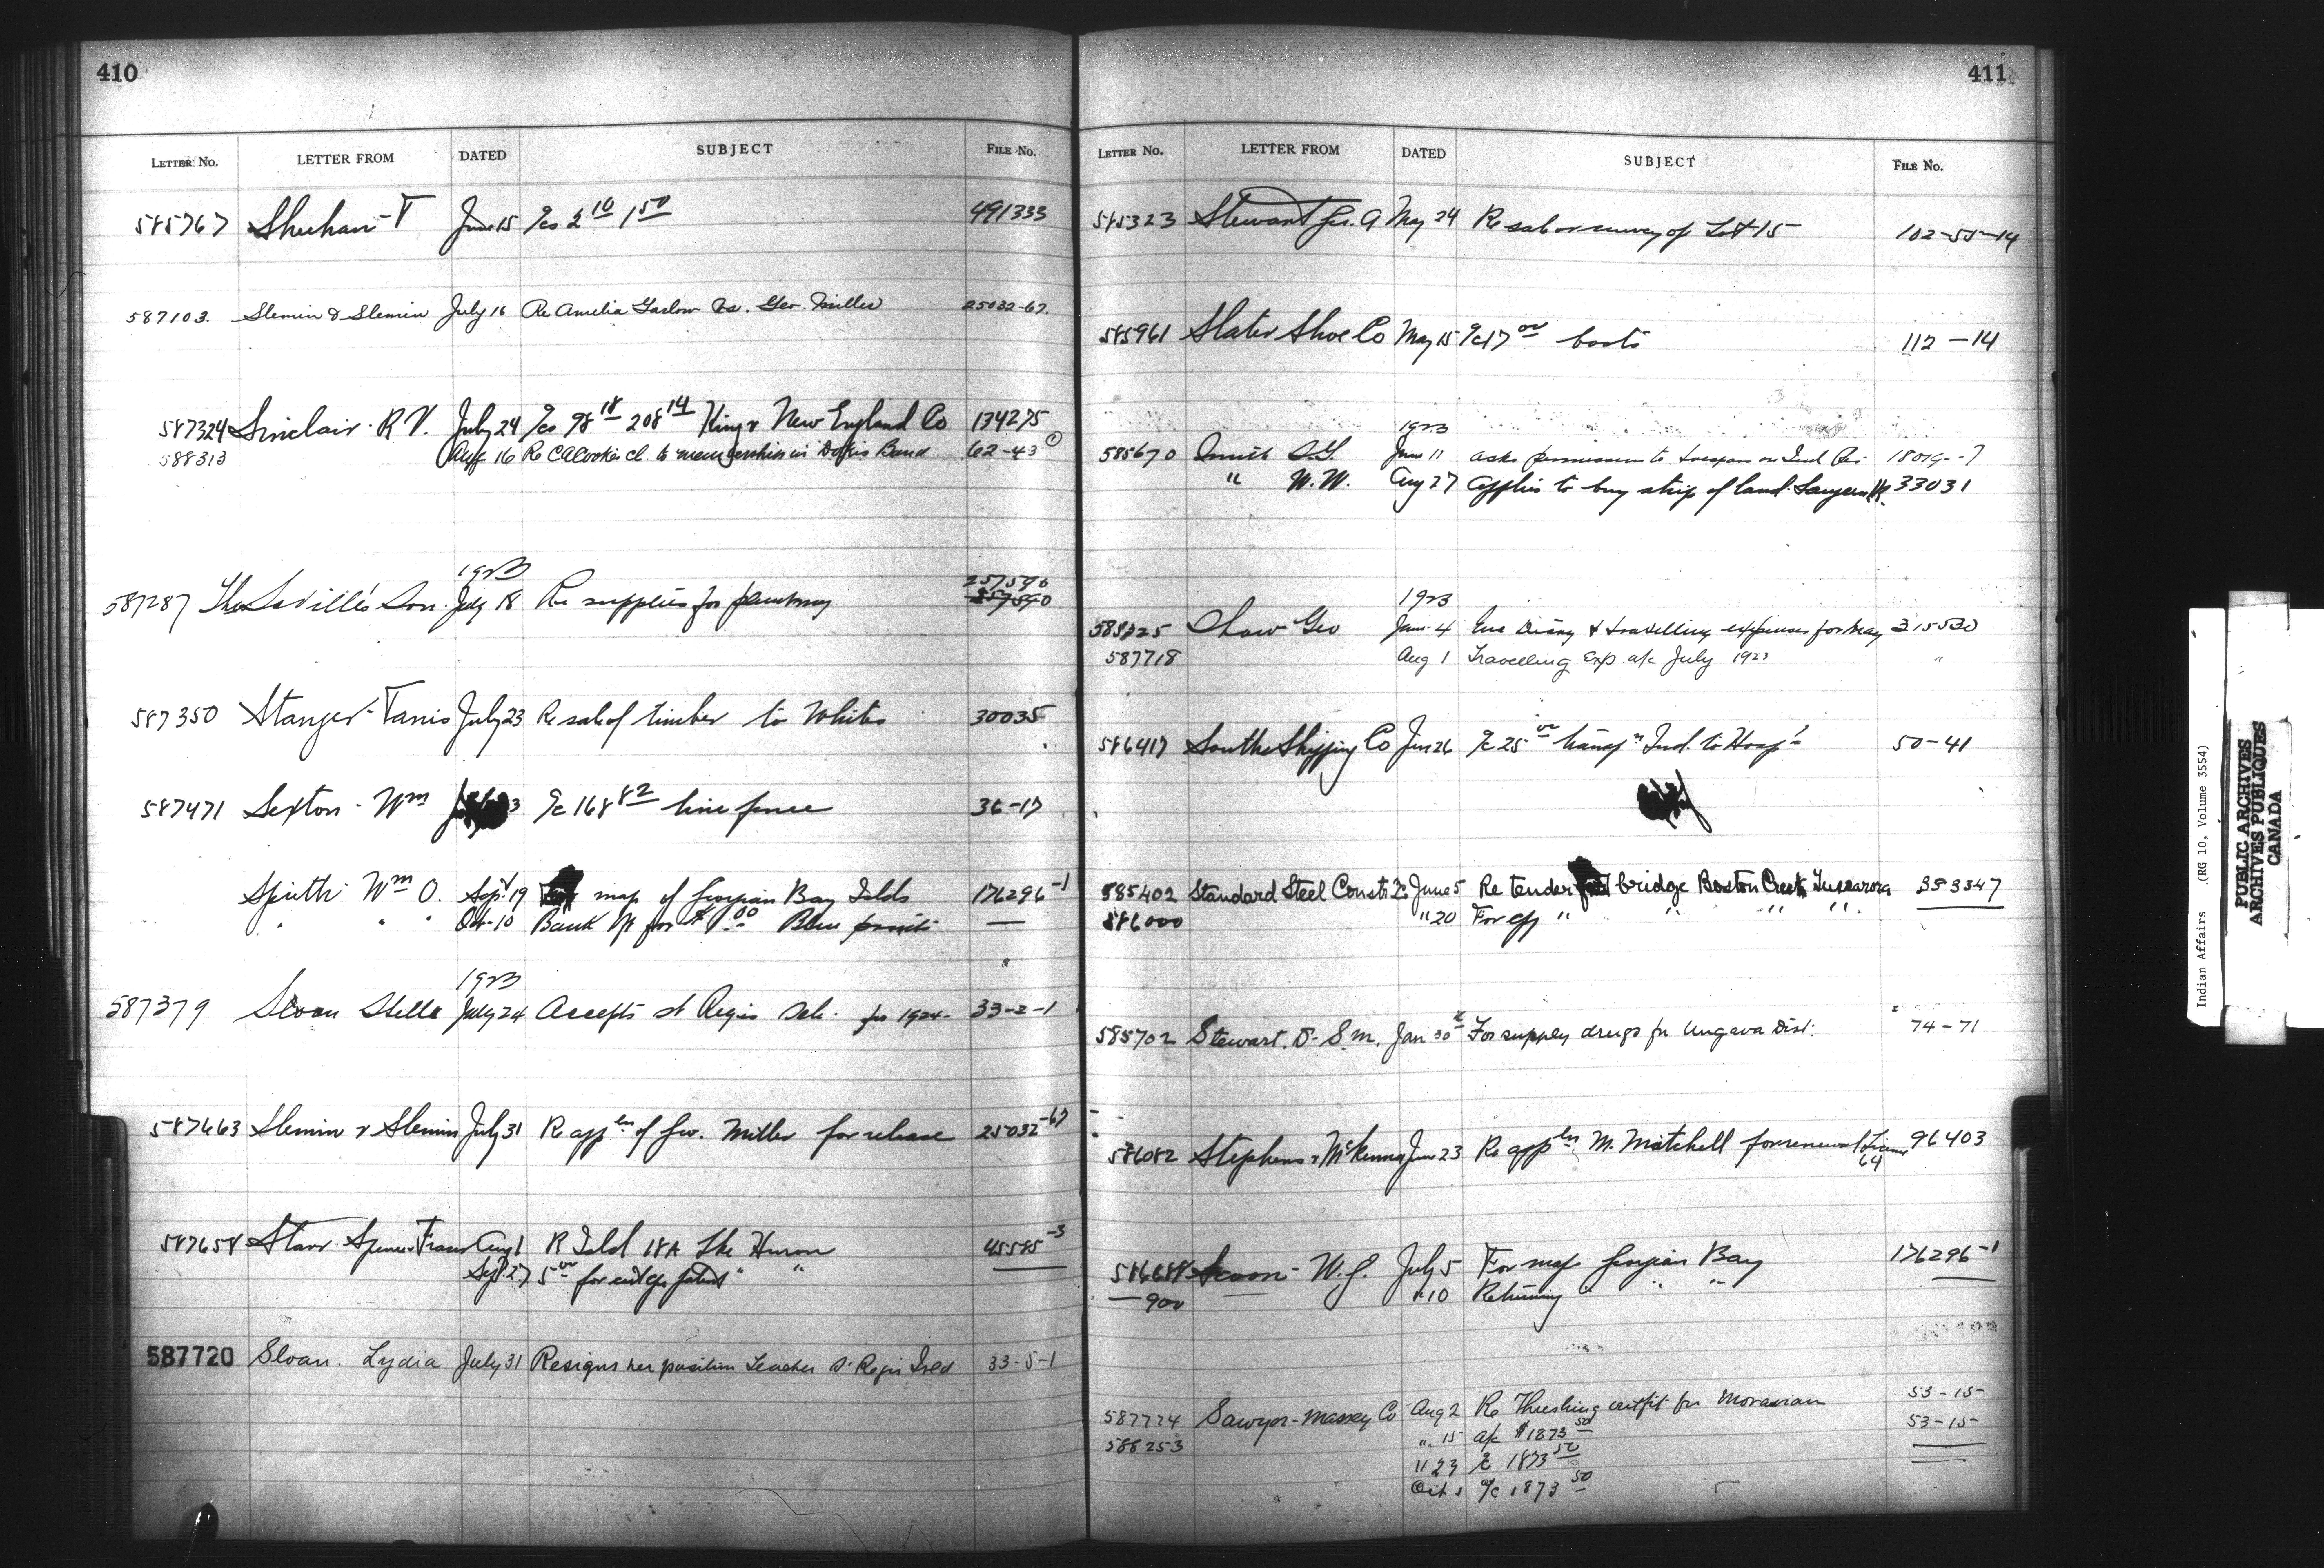 410
LETTER No. LETTER FROM DATED SUBJECT FILE No.
585767 Sheehan - T June 15 a/cs 2 10 1 50 491333
587103. Slemin & Slemin July 16 Re Amelia Garlow vs. Geo. Miller 25032-67.
587324 Sinclair - R V. July 24 a/cs 98 18 208 14 King v New England Co 134275
588313 Aug 16 Re cl. to membership in Band 62-43
1923
257590
587287 Thos Saville's Son. July 18 Re supplies for 257590
587350 Stanger - Tanis July 23 Re sale of timber to Whites 30035
587471 Sexton - Wm 3 a/c 168 82 line fence 36-17
Spirth Wm O. Sept 19 map of Georgian Bay Islds 176296-1
" " " Oct-10 Bank for $1.00 Blue prints —
1923
587379 Sloan Stella July 24 Accepts St Regis Sch. for 1924- 33-2-1
587663 Slemin & Slemin July 31 Re appln of Geo. Miller for release 25032-67
587658 Starr Spence & Fraser Aug 1 R Isld 18A Lke Huron 45585-3
Sept 27 5 00 for patent " "
587720 Sloan. Lydia July 31 Resigns her position Teacher St Regis Isld 33-5-1
411
LETTER No. LETTER FROM DATED SUBJECT FILE No.
585323 Stewart A May 24 Re sale or survey of Lot 15 102-55-14
585961 Slater Shoe Co May 15 a/c 17 00 boots 112-14
1923
585670 Smith June 11 asks permission to trespass on Ind Res 18019--7
" W. W. Aug 27 Applies to buy strip of land. 33031
1923
Shaw Geo June 4 Enc Diary & travelling expenses for May 315530
587718 Aug 1 Travelling Exp a/c July 1923 "
586417 Shipping Co Jun 26 a/c 25 00 transpn Ind. to Hospl 50-41
585402 Standard Steel Constr Co June 5 Re tender bridge Boston Creek Tuscarora 353347
586000 " 20 For " " " "
585702 Stewart. D- S. M. Jan 30 For supply drugs for Ungava Dist: 74-71
586082 Stephens & McKenna Jun 23 Re appln. M. Mitchell for renewal License 64 96403
586688 W. J. July 5 For map Georgian Bay 176296-1
— 900 " 10 Returning " " "
587724 Sawyer-Massey Co Aug 2 Re Threshing outfit for Moravian 53-15-
588253 " 15 a/c $1873 50 53-15-
" 23 a/c 1873 50
Oct 1 a/c 1873 50
Indian Affairs .(RG 10, Volume 3554)
PUBLIC ARCHIVES
ARCHIVES PUBLIQUES
CANADA